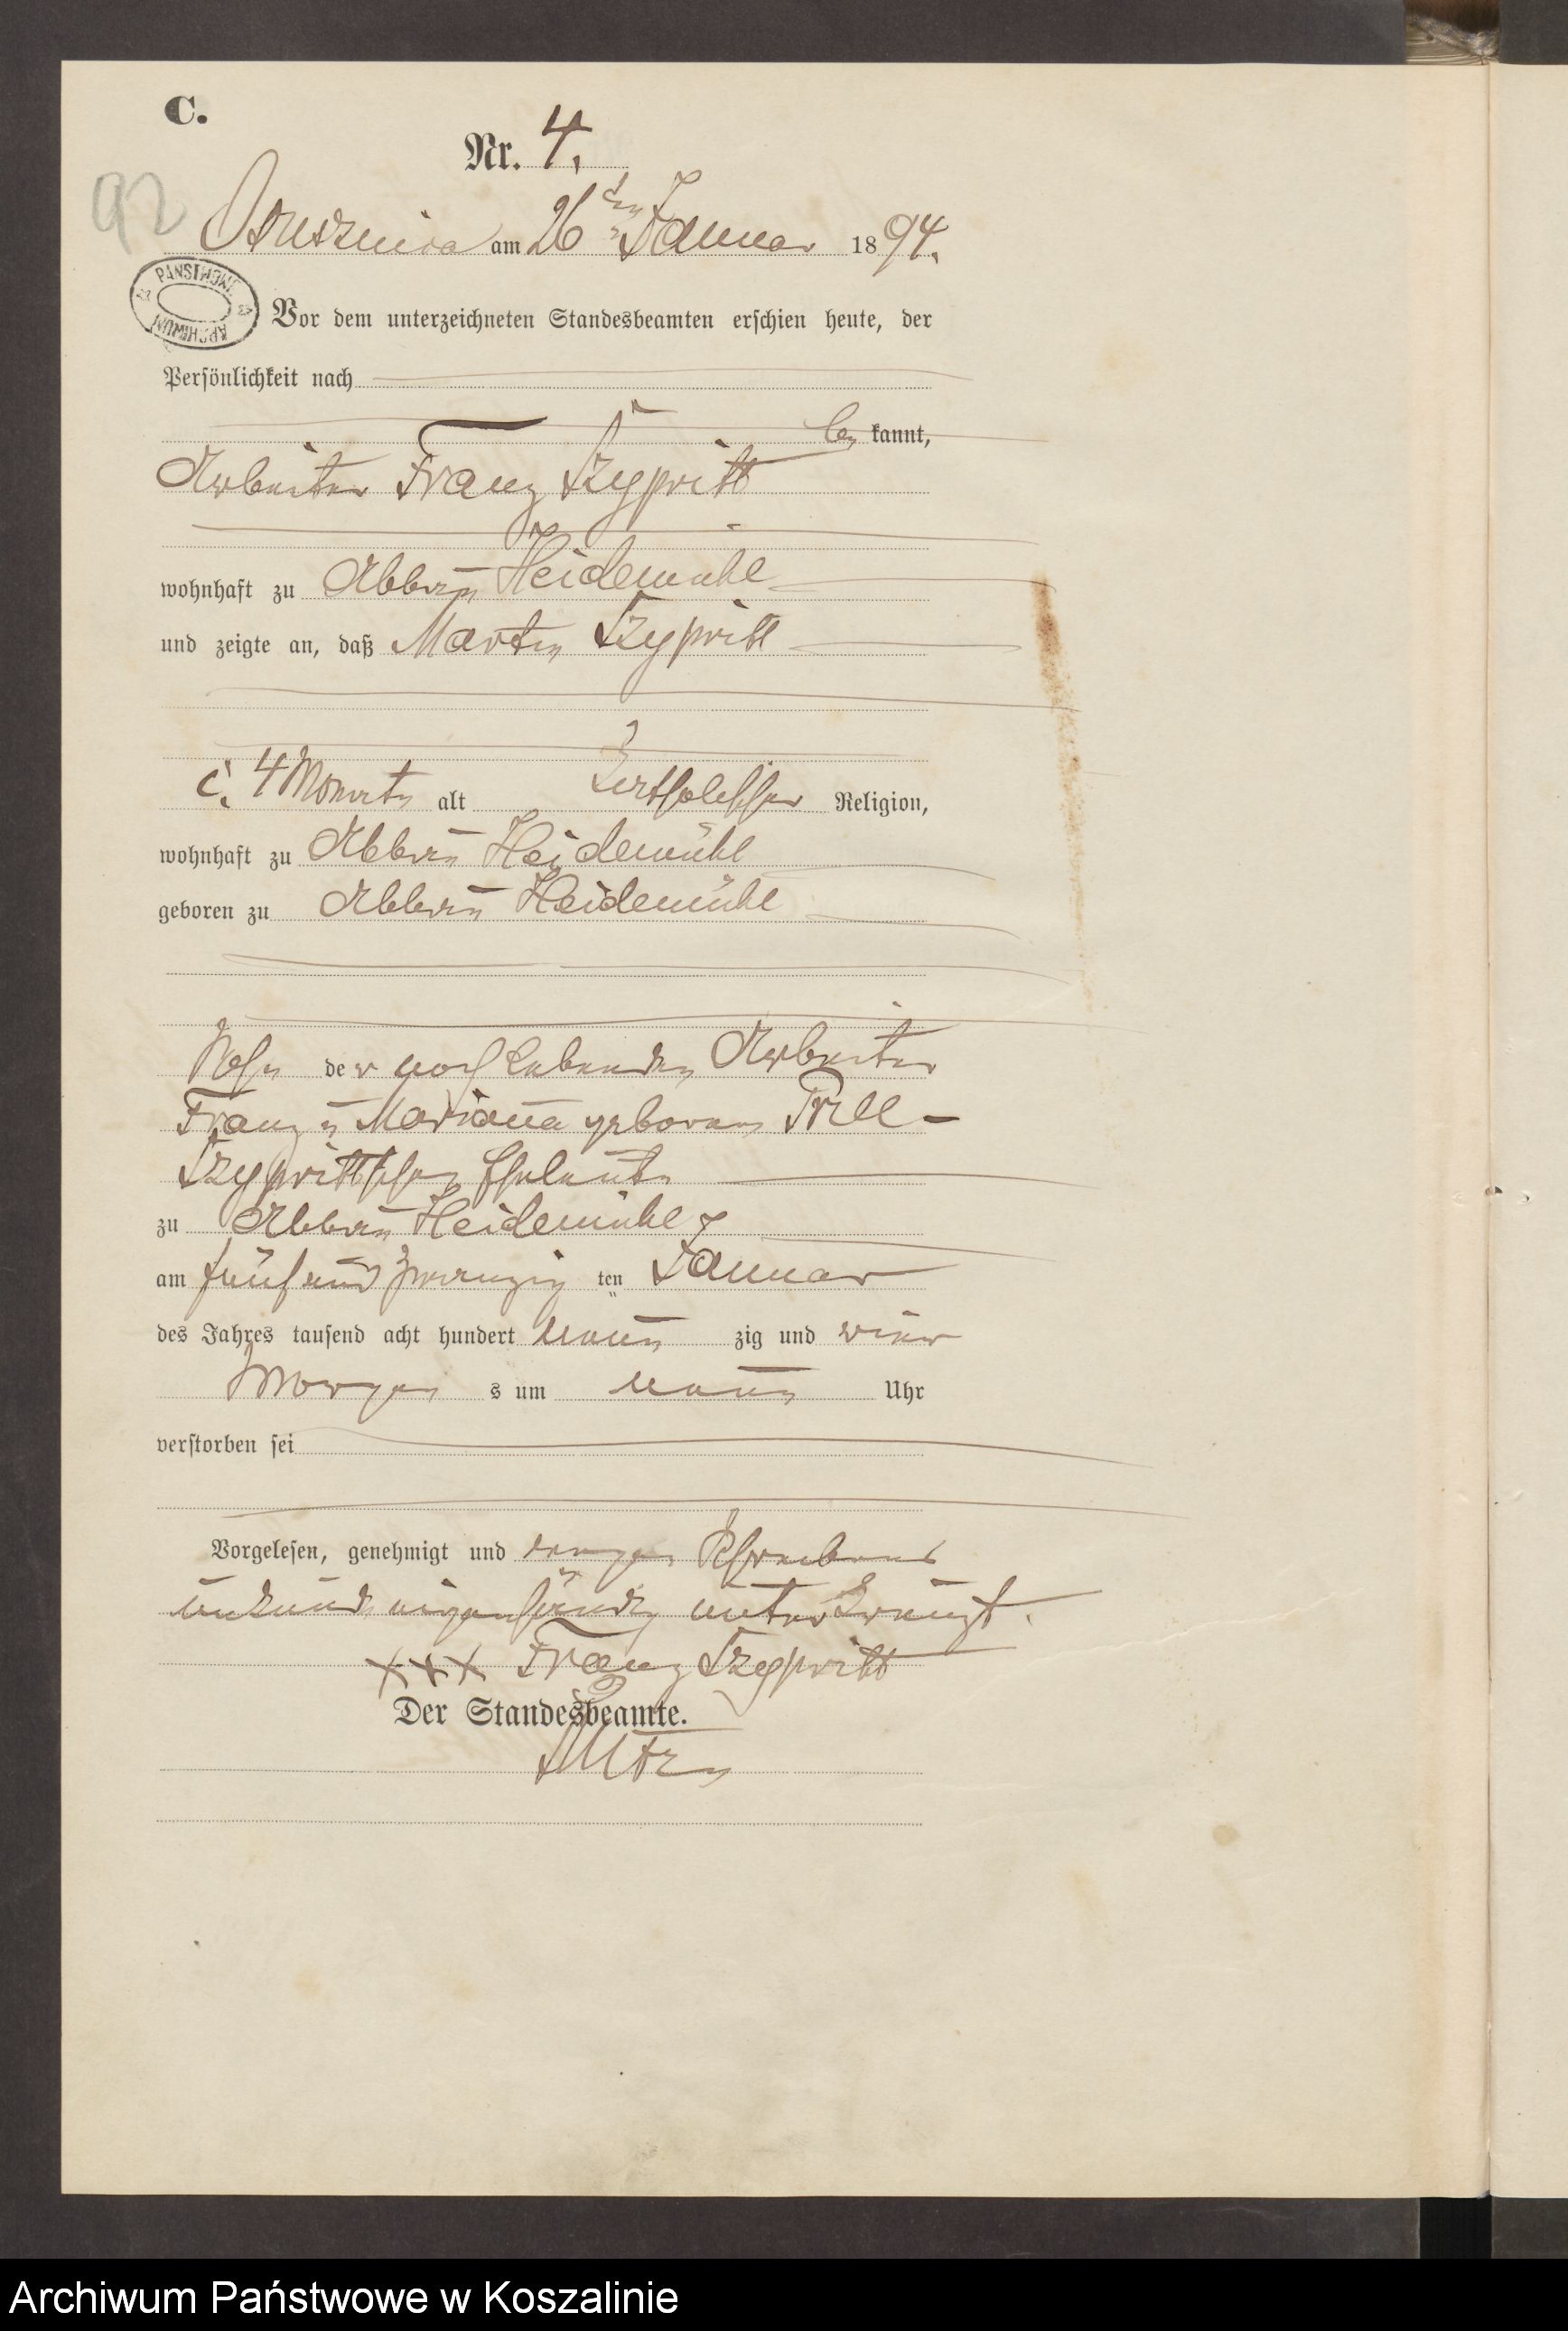 C.
Nr. 4.
92
Ostruszenica am 26ten Januar 1894.
PAŃSTWOWE ARCHIWUM
Vor dem unterzeichneten Standesbeamten erschien heute, der
Persönlichkeit nach
be kannt,
Arbeiter Franz Szypritt
wohnhaft zu Abbau Heidemühl
und zeigte an, daß Martin Szypritt
c. 4 Monate alt katholischer Religion,
wohnhaft zu Abbau Heidemühl
geboren zu Abbau Heidemühl
Sohn der noch lebenden Arbeiter
Franz u Mariana geborene Prill-
Szyprittschen Eheleute
zu Abbau Heidemühl
am fünf und zwanzig ten Januar
des Jahres tausend acht hundert neun zig und vier
Morgen s um neun Uhr
verstorben sei
Vorgelesen, genehmigt und wegen Schreibens
unkunde eigenhändig unterkreuzt.
+++ Franz Szypritt
Der Standesbeamte.
Archiwum Państwowe w Koszalinie